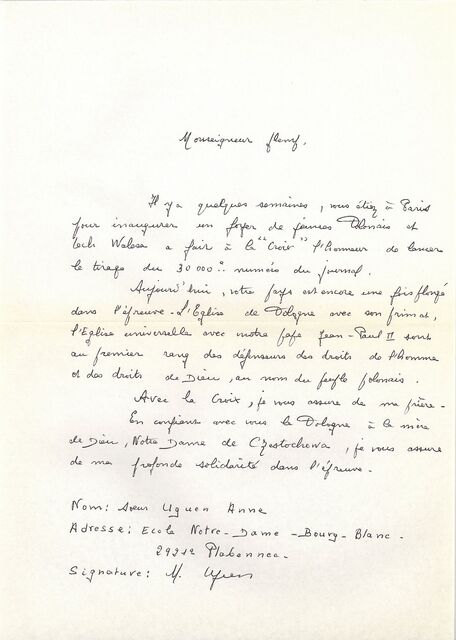 Monseigneur Glemp,
Il y a quelques semaines, vous étiez à Paris
pour inaugurer un foyer de jeunes Polonais et
Lech Walesa a fait à la "Croix" l'honneur de lancer
le tirage du 30 000° numéro du journal.
Aujourd'hui, votre pays est encore une fois plongé
dans l'épreuve - L'Eglise de Pologne avec son primat,
l'Eglise universelle avec notre pape Jean-Paul II sont
au premier rang des défenseurs des droits de l'homme
et des droits de Dieu, au nom du peuple polonais.
Avec la Croix, je vous assure de ma prière -
En confiant avec vous la Pologne à la mère
de Dieu, Notre Dame de Czestochowa, je vous assure
de ma profonde solidarité dans l'épreuve -
Nom: Soeur Uguen Anne
Adresse: Ecole Notre-Dame - Bourg-Blanc -
29212 Plabennec -
Signature: M. Uguen